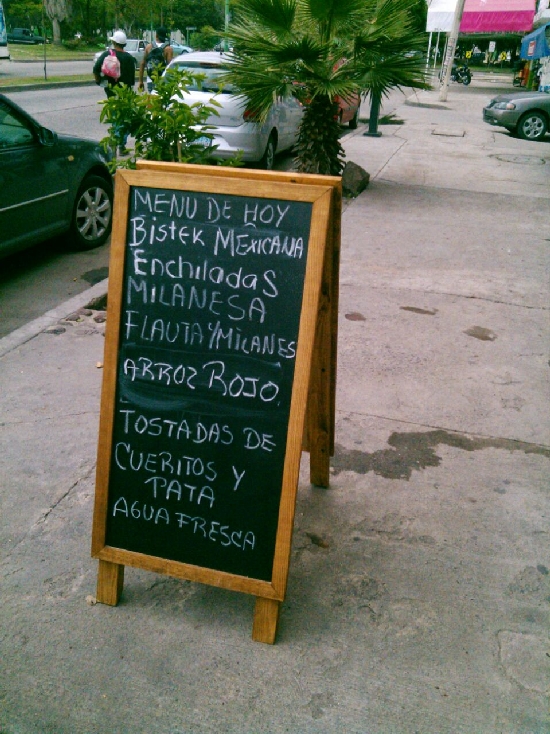 MENU DE HOY
Bistek MEXICANA
EnchiladaS
MILANESA
FLAUTA Y MILANES
ARROZ ROJO.
TOSTADAS DE
CUERITOS Y
PATA
AGUA FRESCA